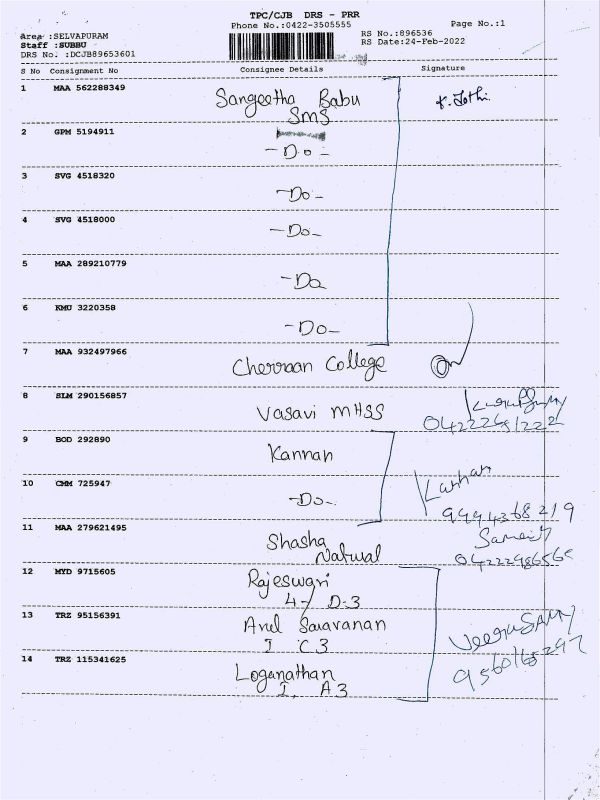 TPC/CJB DRS - PRR
Phone No.:0422-3505555 Page No.:1
Area :SELVAPURAM RS No.:896536
Staff :SUBBU RS Date:24-Feb-2022
DRS No. :DCJB89653601
S No Consignment No Consignee Details Signature
1 MAA 562288349 Sangeetha Babu K. Jothi
SMS
2 GPM 5194911
-Do-
3 SVG 4518320
-Do-
4 SVG 4518000
-Do-
5 MAA 289210779
-Do
6 KMU 3220358
-Do-
7 MAA 932497966 Cherraan College
8 SLM 290156857
Vasavi MHSS
9 BOD 292890
Kannan
10 CMM 725947 Kannan
-Do- 9994368219
11 MAA 279621495
Shasha
Natural
12 MYD 9715605 Rajeswari
4-/ D-3
13 TRZ 95156391 Arul Saravanan
I C3
14 TRZ 115341625 Loganathan
I, A3